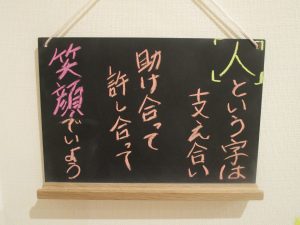 「人」という字は
支え合い
助け合って
許し合って
笑顔でいよう